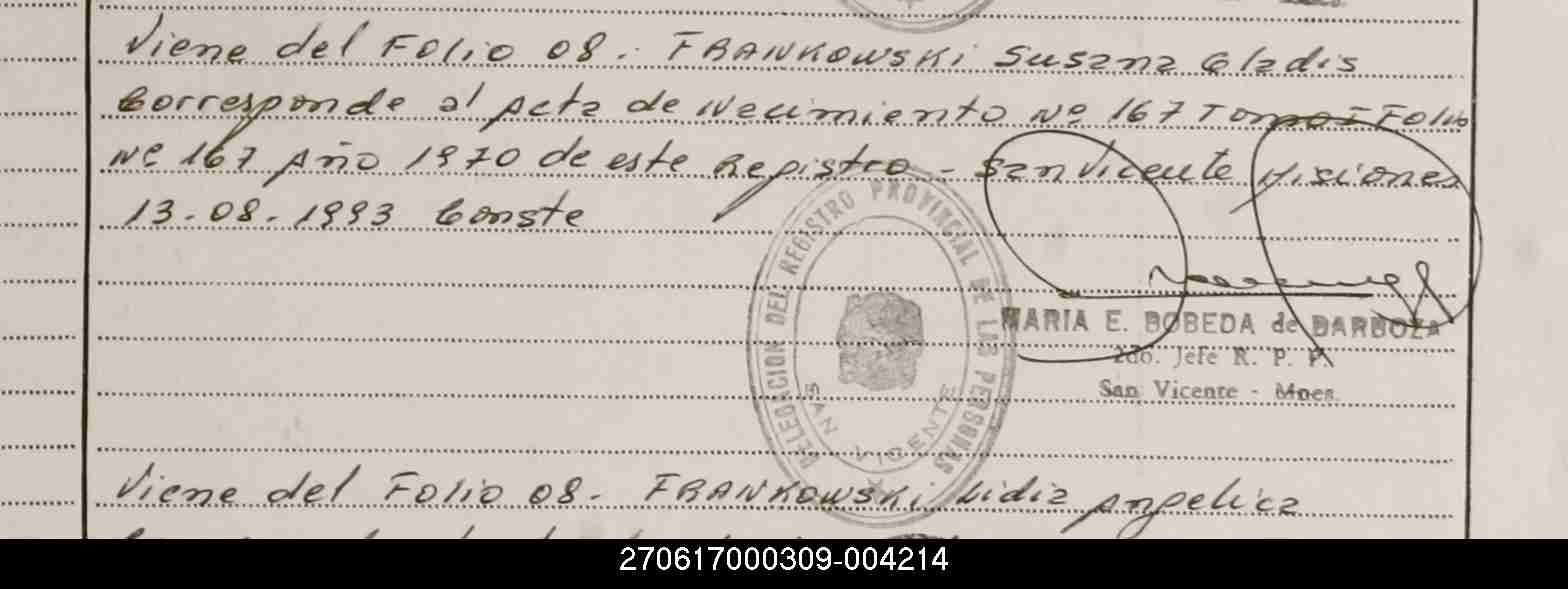 Viene del Folio 08. FRANKOWSKI Susana Gladis
Corresponde al Acta de Nacimiento Nº 167 Tomo I Folio
Nº 167 Año 1970 de este Registro - San Vicente Misiones
13-08-1993 Conste
DELEGACION DEL REGISTRO PROVINCIAL DE LAS PERSONAS
SAN VICENTE
MARIA E. BOBEDA de BARBOZA
2do. Jefe R. P. P.
San Vicente - Mnes.
Viene del Folio 08. FRANKOWSKI Lidia Angelica
270617000309-004214